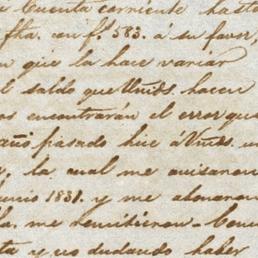 Cuenta corriente hasta
fha. con fs. 583. á su favor,
que la hace variar
l saldo que Vmds. hacen
os encontrarán el error que
año pasado hice á Vmds. un
la cual me avisaron
unio 1831. y me abonaron
la. me remitieron Cuen
ta y no dudando haber